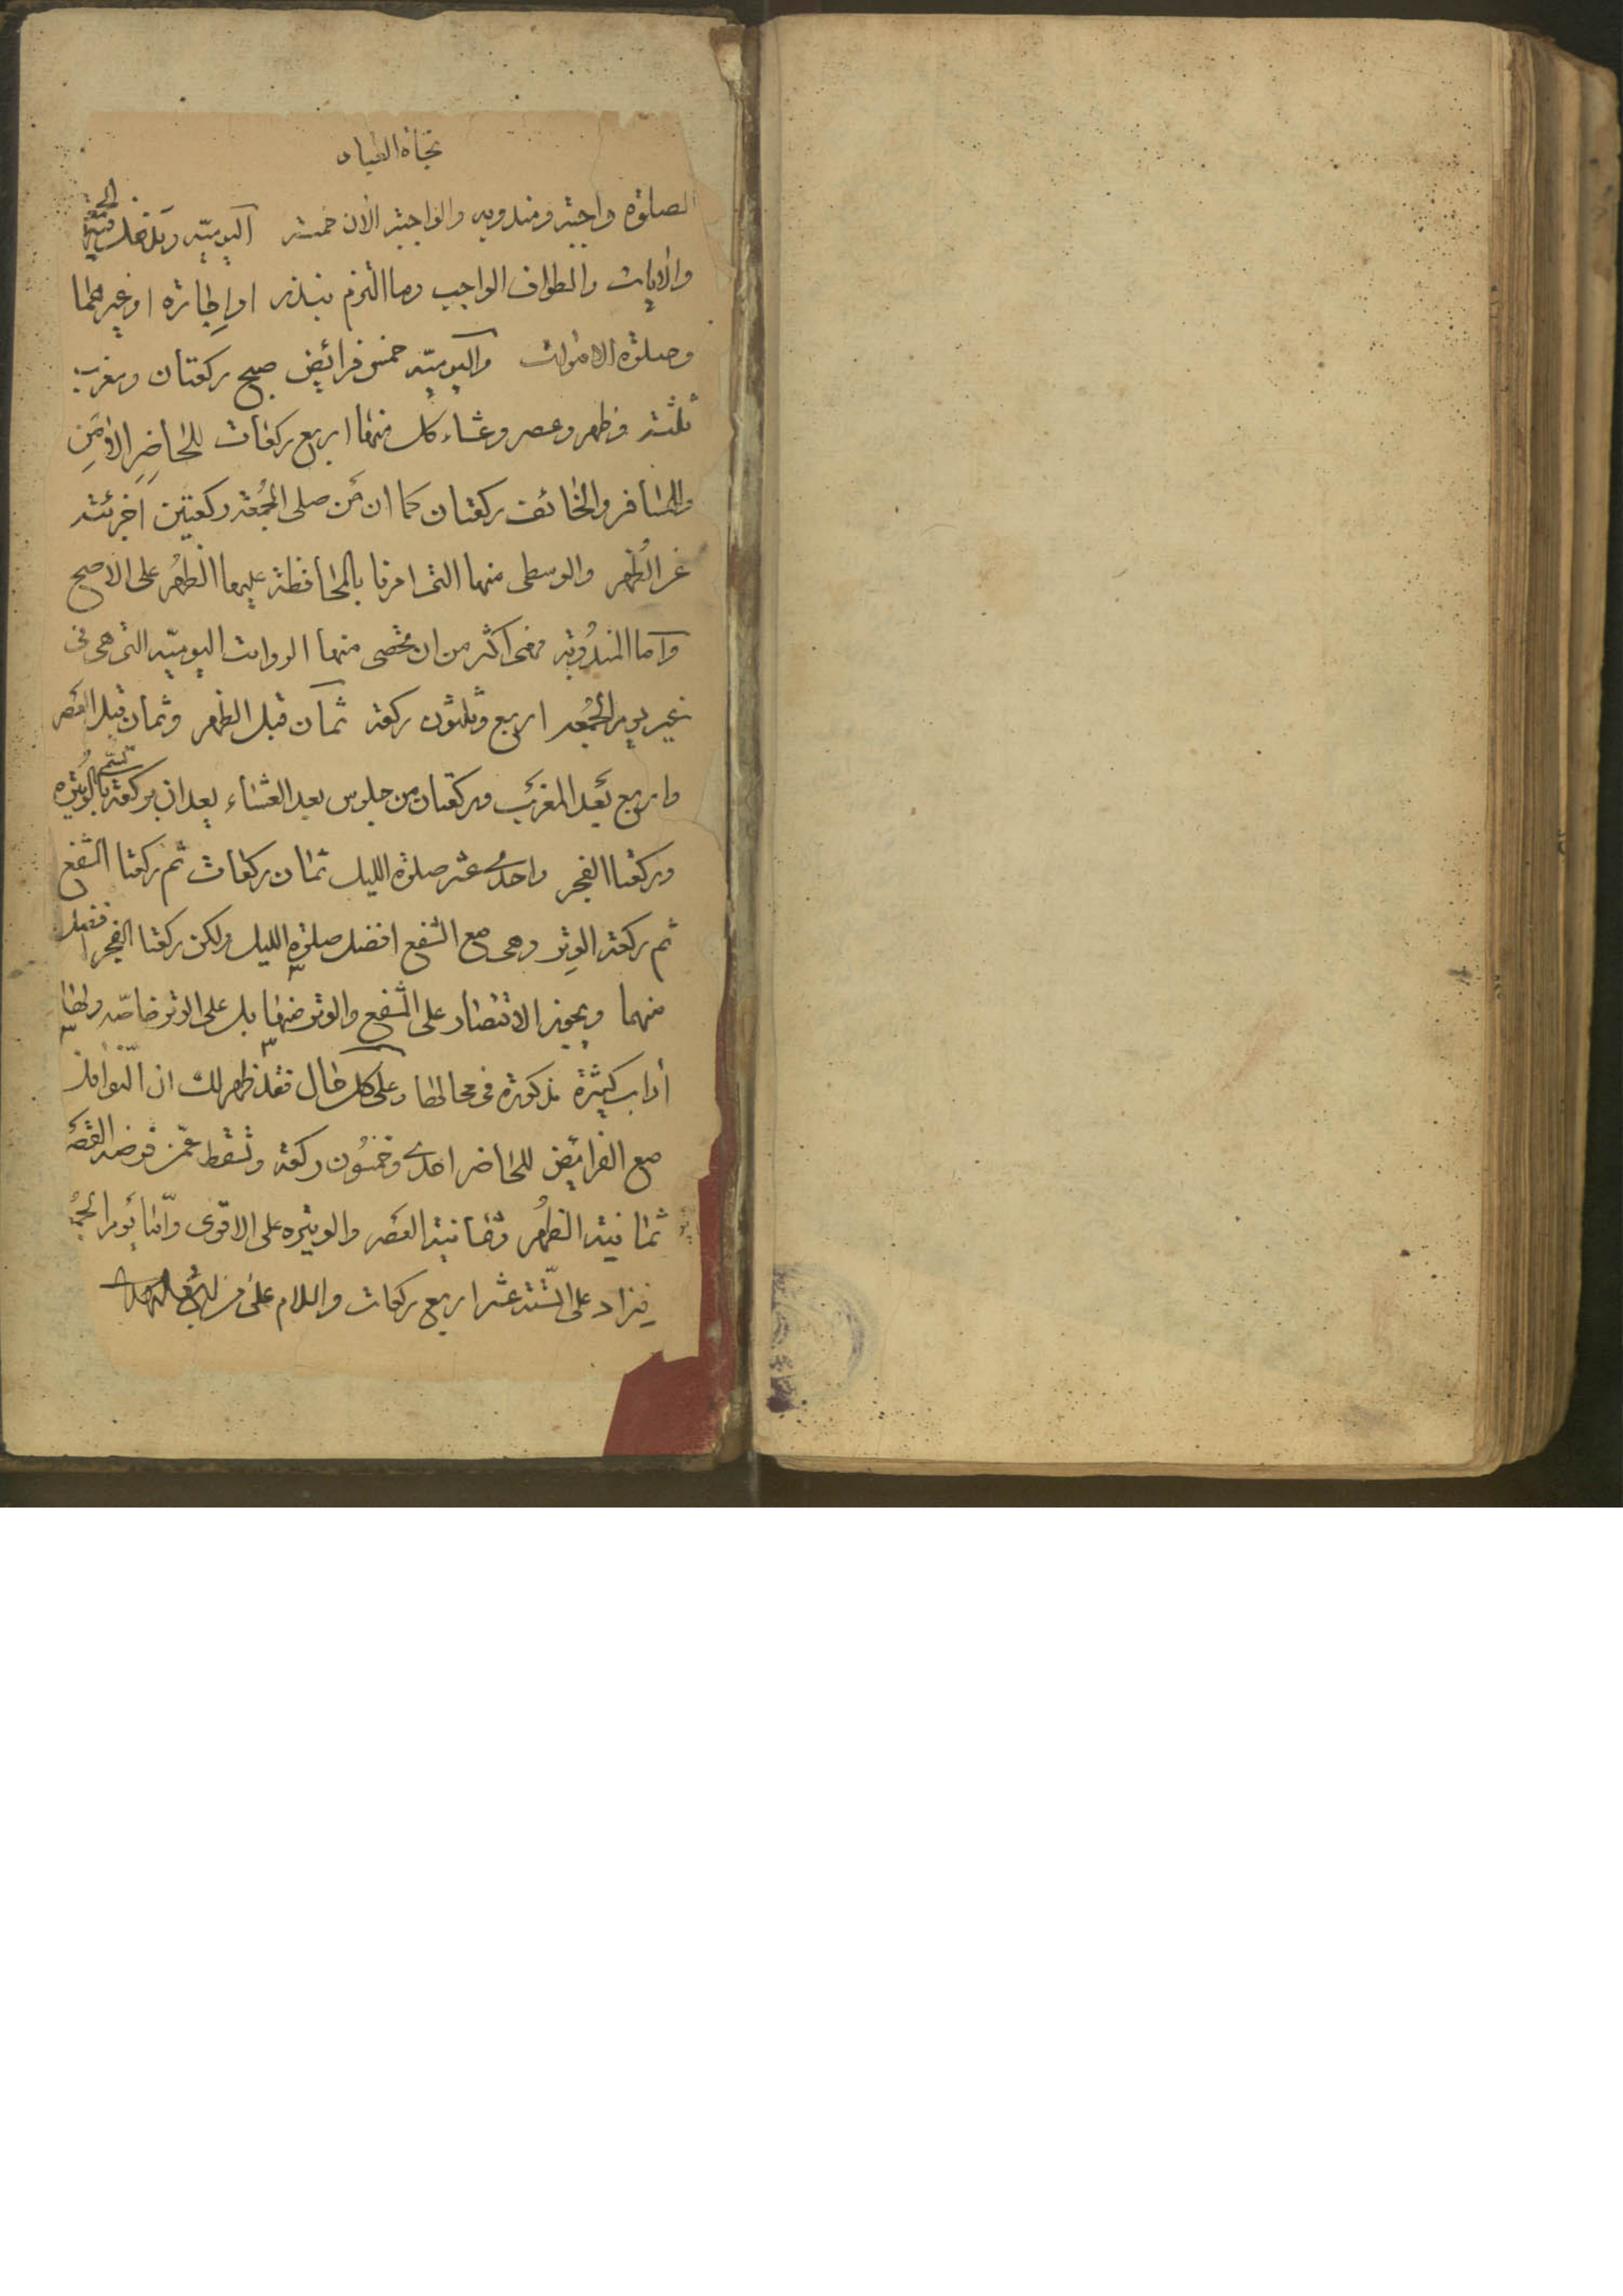 نجاة العباد
الصلوة واجبة ومندوبه والواجبة الان خمسة اليوميّه وتدخل فيها الجمعة
والايات والطواف الواجب وما التزم بنذر او اجارة او غيرهما
وصلوة الاموات واليوميّه خمس فرائض صبح ركعتان ومغرب
ثلثة وظهر وعصر وعشاء كل منها اربع ركعات للحاضر الامن
وللمسافر والخائف ركعتان كما ان من صلى الجمعة ركعتين اجزئته
عن الظهر والوسطى منها التى امرنا بالمحافظة عليها الظهر على الاصح
واما المندوبة فهى اكثر من ان تحصى منها الرواتب اليوميّه التى هى فى
غير يوم الجمعه اربع وثلثون ركعة ثمان قبل الظهر وثمان قبل العصر
واربع بعد المغرب وركعتان من جلوس بعد العشاء يعدان بركعة تسمى بالوتيره
وركعتا الفجر واحدى عشر صلوة الليل ثمان ركعات ثم ركعتا الشفع
ثم ركعة الوتر وهى مع الشفع افضل صلوة الليل ولكن ركعتا الفجر افضل
منهما ويجوز الاقتصار على الشفع والوتر منها بل على الوتر خاصّه ولها
أداب كثيرة مذكورة فى محالها وعلى كل حال فقد ظهر لك ان النوافل
مع الفرائض للحاضر احدى وخمسون ركعة وتسقط عمّن فرضه القصر
ثمانية الظهر وثمانية العصر والوتيره على الاقوى وامّا يوم الجمعة
فيزاد على الستة عشر اربع ركعات والسلام على من اتبع الهدى